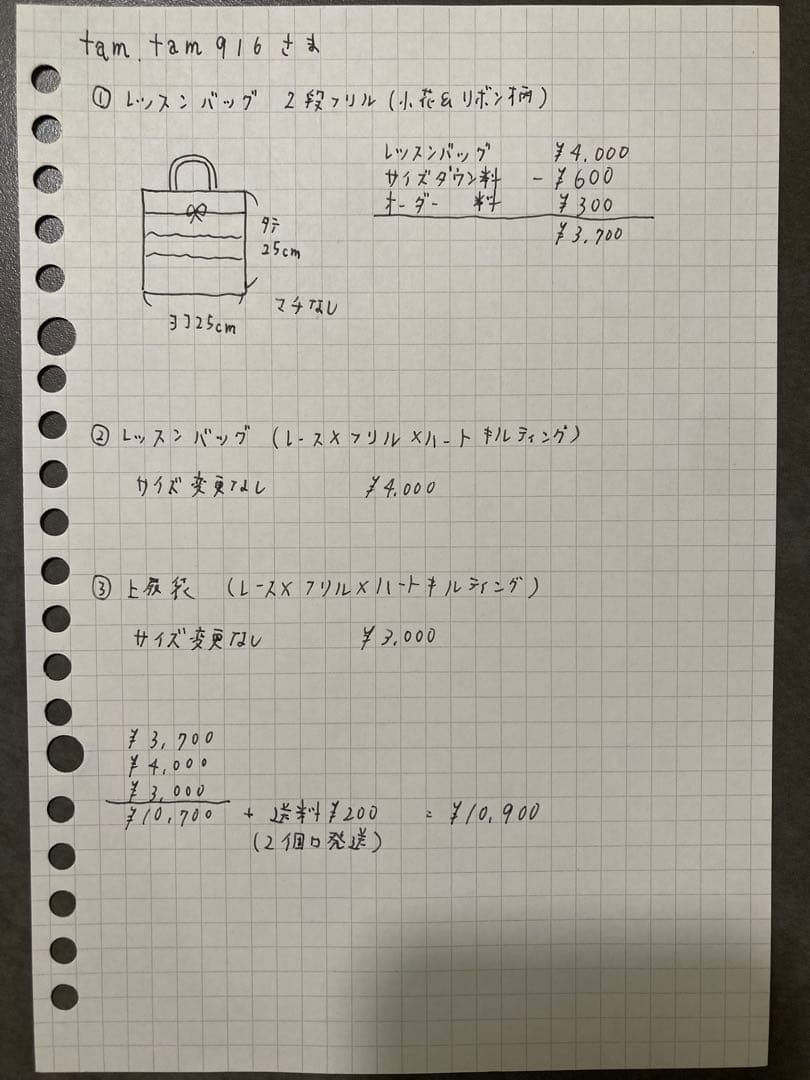 tam.tam916さま
① レッスンバッグ 2段フリル(小花&リボン柄)
レッスンバッグ ¥4.000
サイズダウン料 -¥600
オーダー 料 ¥300
¥3,700
タテ
25cm
マチなし
ヨコ25cm
② レッスンバッグ (レース×フリル×ハートキルティング)
サイズ変更なし ¥4.000
③ 上履袋 (レース×フリル×ハートキルティング)
サイズ変更なし ¥3,000
¥3,700
¥4,000
¥3,000
¥10,700 + 送料¥200 = ¥10,900
(2個口発送)